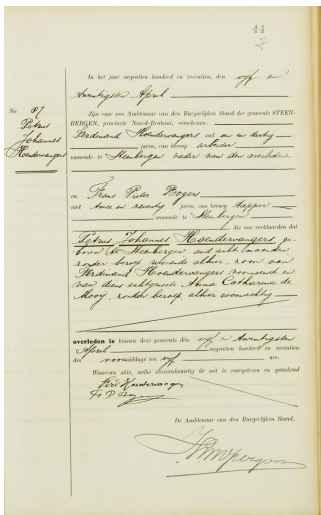 44
In het jaar negentien honderd en zeventien, den vijf en
twintigsten April
Zijn voor ons Ambtenaar van den Burgerlijken Stand der gemeente STEEN-
BERGEN, provincie Noord-Brabant, verschenen:
No. 87
Petrus
Johannes
Hoendervangers
Ferdinand Hoendervangers oud en dertig
jaren, van beroep arbeider
wonende te Steenbergen vader van den overledene
en Frans Pieter Bogers
oud twee en zeventig jaren, van beroep tapper
wonende te Steenbergen
die ons verklaarden dat
Petrus Johannes Hoendervangers ge-
boren te Steenbergen oud acht maanden
zonder beroep wonende alhier, zoon van
Ferdinand Hoendervangers voornoemd en
van diens echtgenoote Anna Catharina de
Mooy, zonder beroep alhier woonachtig
overleden is binnen deze gemeente den vijf en twintigsten
April negentien honderd en zeventien
des voormiddags ten vijf ure.
Waarvan akte, welke overeenkomstig de wet is voorgelezen en geteekend
Ferd Hoendervangers
De Ambtenaar van den Burgerlijken Stand,